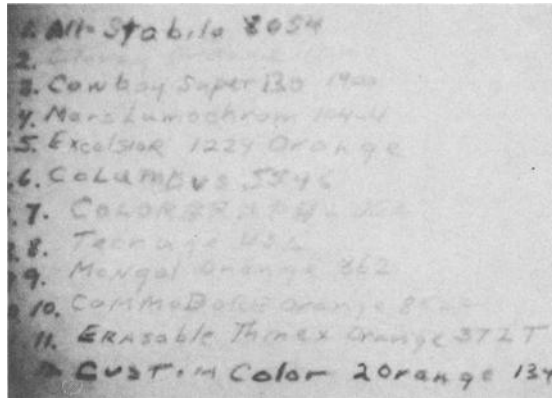 1. All-Stabilo 8054
2.
3. Cowboy Super 130 1400
4. Mars Lumochrom
5. Excelsior 1224 Orange
6. COLUMBUS
7.
8. Teenage
9. Mongol Orange 862
10. COMMODORE Orange
11. ERAsable Thinex Orange 372T
CUSTOM Color 2 Orange 134